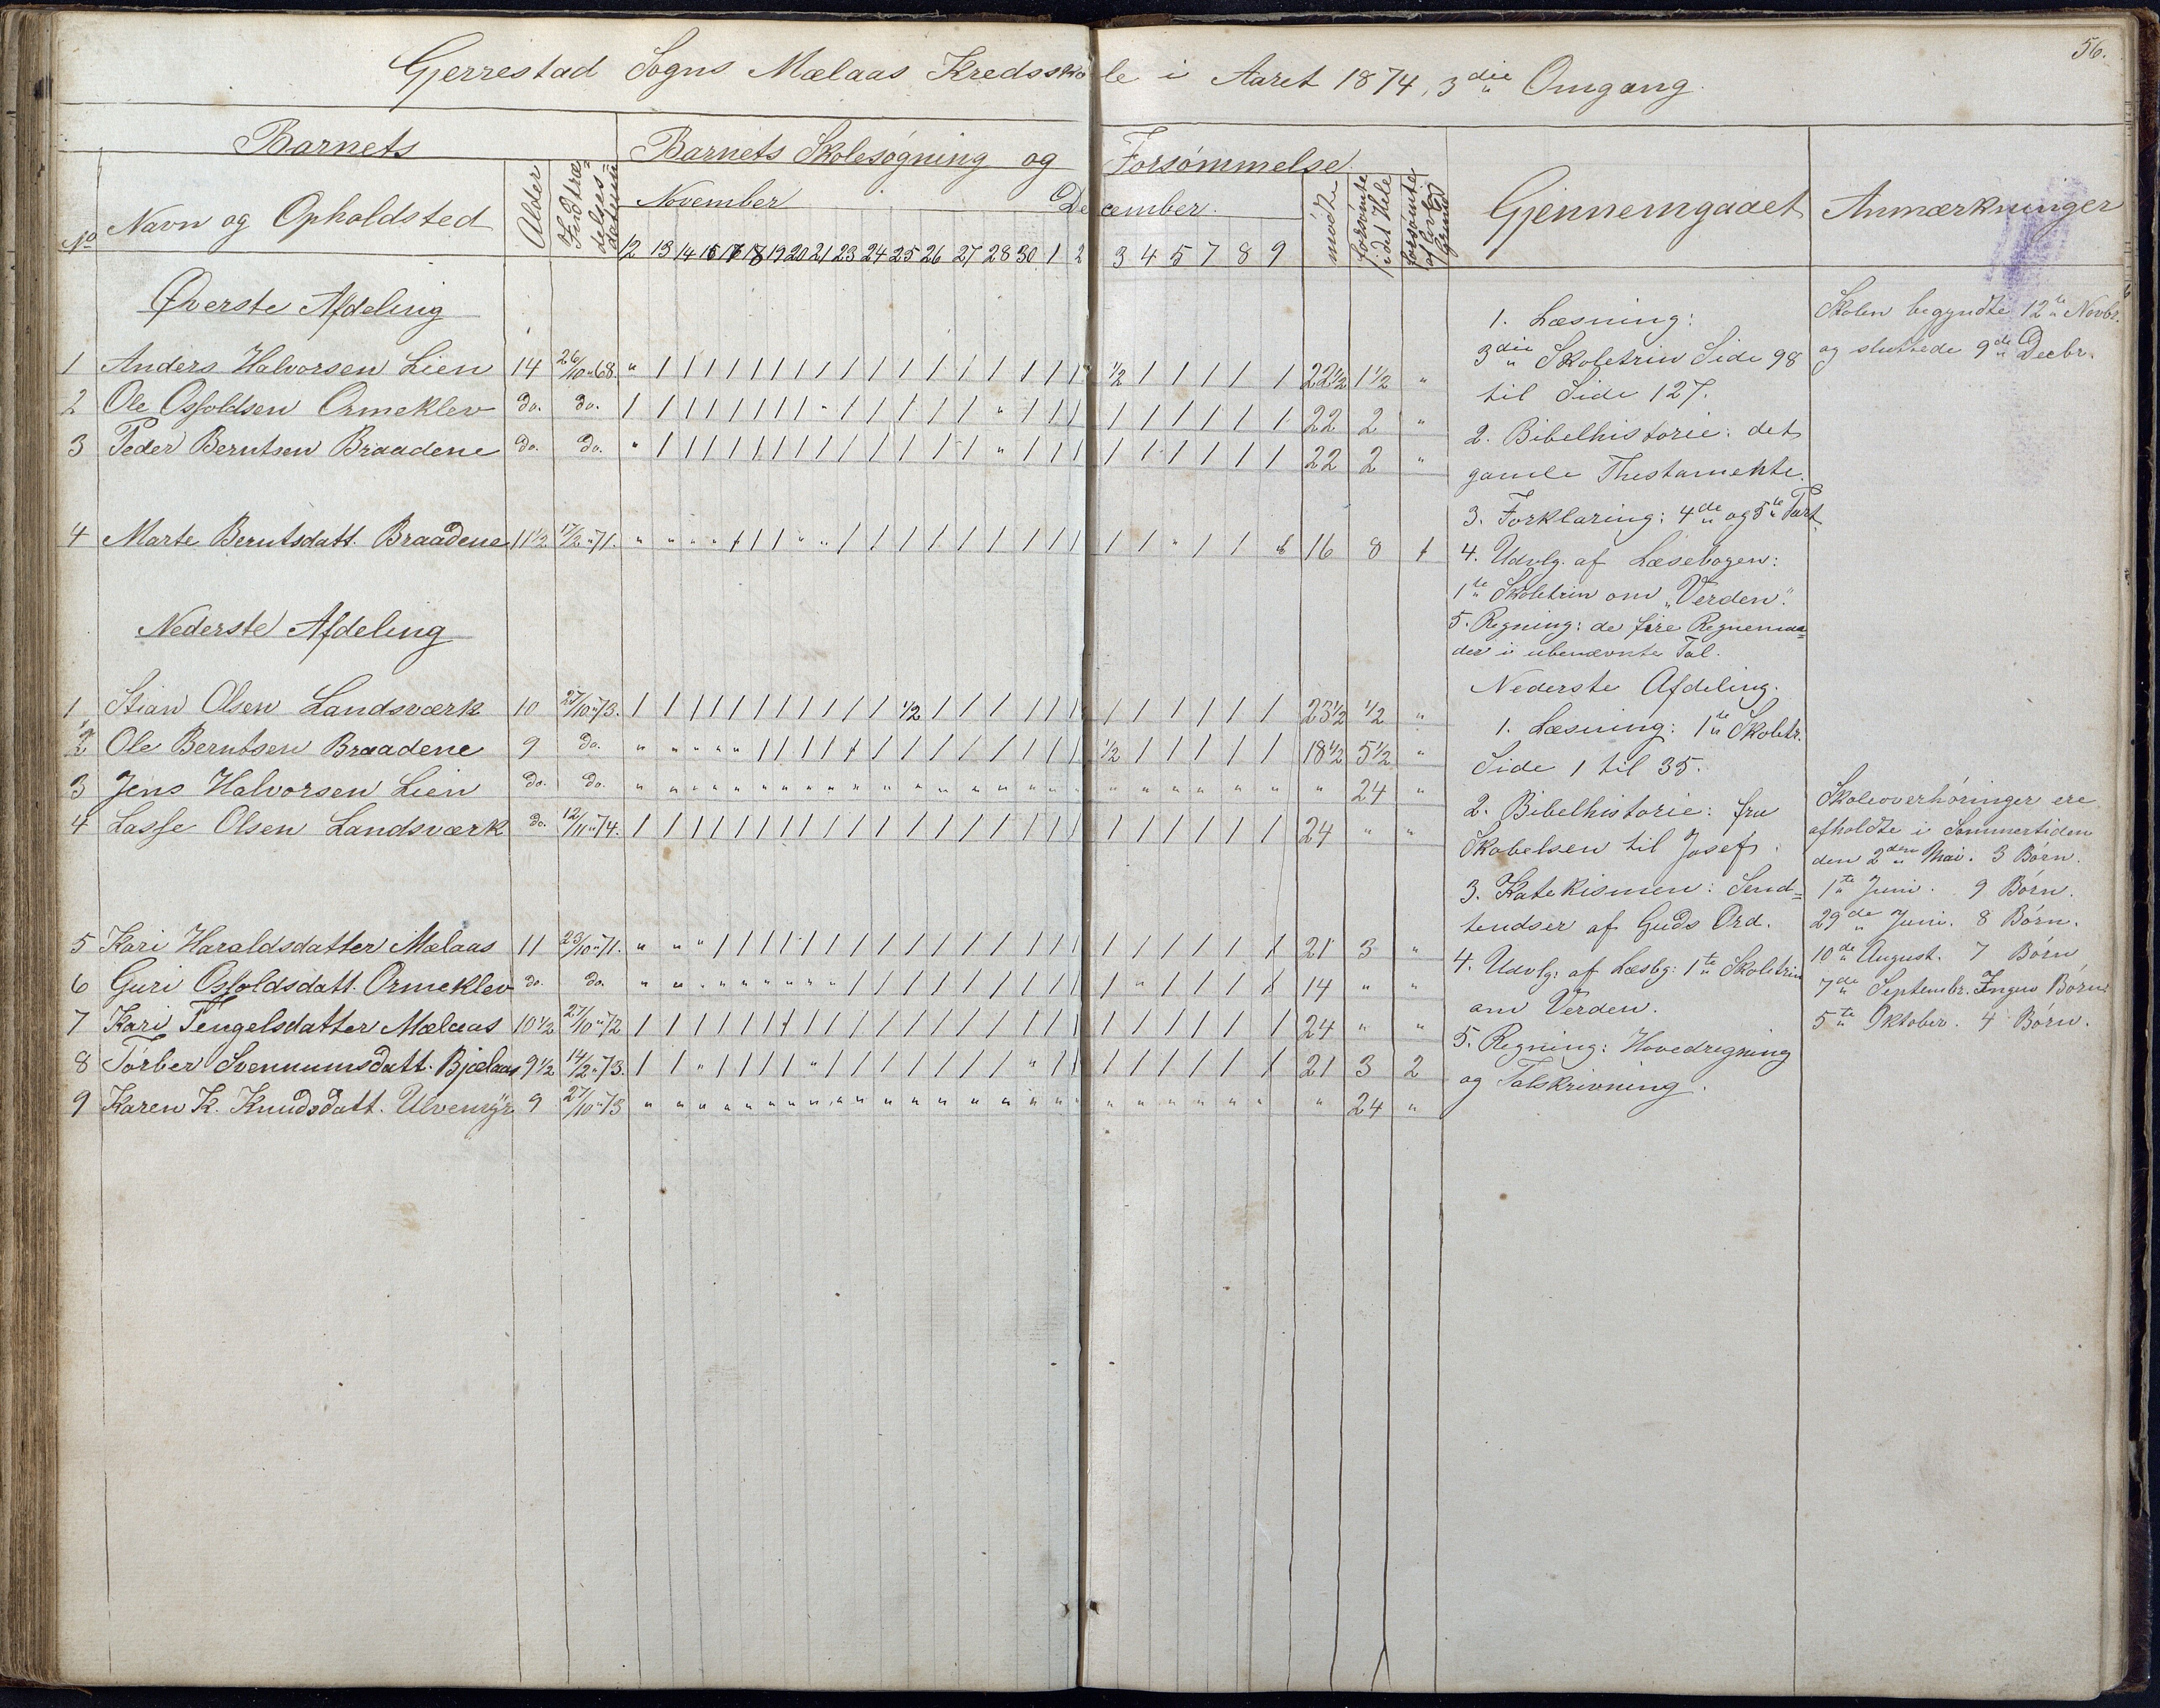 56.
Gjerrestad Sogns Mælaas Kredsskole i Aaret 1874, 3die Omgang.
Barnets
Barnets Skolesøgning og Forsømmelse
No Navn og Opholdsted Alder Indtrædelsesdatum
November December.
12 13 14 16 17 18 19 20 21 23 24 25 26 27 28 30 1 2 3 4 5 7 8 9
mødte forsømte i det Hele forsømte af lovlig Grund
Gjennemgaaet Anmærkninger
Øverste Afdeling
1 Anders Halvorsen Lien 14 26/10 " 68. " / / / / / / / / / / / / / / / / / 1/2 / / / / / 22 1/2 1 1/2 "
2 Ole Osfoldsen Ormeklev do. do. / / / / / / / / " / / / / / " / / / / / / / / / 22 2 "
3 Peder Berntsen Braadene do. do. " / / / / / / / / / / / / / " / / / / / / / / / 22 2 "
4 Marte Berntsdatt. Braadene 11 1/2 17/2 " 71. 16 8 1
Nederste Afdeling
1 Stian Olsen Landsværk 10 27/10 " 73. / / / / / / / / / / / 1/2 / / / / / / / / / / / / 23 1/2 1/2 "
2 Ole Berntsen Braadene 9 do. " " " " " / / / / / / / / / / / / / 1/2 / / / / / 18 1/2 5 1/2 "
3 Jens Halvorsen Lien do. do. " " " " " " " " " " " " " " " " " " " " " " " " " 24 "
4 Lasse Olsen Landsværk do. 12/11 " 74. / / / / / / / / / / / / / / / / / / / / / / / / 24 " "
5 Kari Haraldsdatter Mælaas 11 23/10 " 71. " " " / / / / / / / / / / / / / / / / / / / / / 21 3 "
6 Guri Osfoldsdatt. Ormeklev do. do. " " " " " " " " " / / / / / / / / / / " / / / / 14 " "
7 Kari Tengelsdatter Mælaas 10 1/2 27/10 " 72 / / / / / / / / / / / / / / / / / / / / / / / / 24 " "
8 Torber Svennumsdatt. Bjælaas 9 1/2 14/2 " 73. / / " / / / / " / / / / / / / " / / / / / / / / 21 3 2
9 Karen K. Knudsdatt. Ulvemyr 9 27/10 " 73 " " " " " " " " " " " " " " " " " " " " " " " " " 24 "
1. Læsning:
3die Skoletrin Side 98
til Side 127.
2. Bibelhistorie: det
gamle Thestamente.
3. Forklaring: 4de og 5te Part.
4. Udvlg. af Læsebogen:
1te Skoletrin om „Verden".
5. Regning: de fire Regnemaa=
der i ubenævnte Tal.
Nederste Afdeling.
1. Læsning: 1te Skoletr.
Side 1 til 35.
2. Bibelhistorie: fra
Skabelsen til Josef.
3. Katekismen: Send=
tendser af Guds Ord.
4. Udvlg: af Læsbg: 1te Skoletrin
om Verden.
5. Regning: Hovedregning
og Talskrivning.
Skolen begyndte 12te Novbr.
og sluttede 9de Decbr.
Skoleoverhøringer ere
afholdte i Sommertiden
den 2den Mai. 3 Børn.
1te Juni. 9 Børn.
29de Juni. 8 Børn.
10de August. 7 Børn
7de Septembr. Ingen Børn.
5te Oktober. 4 Børn.